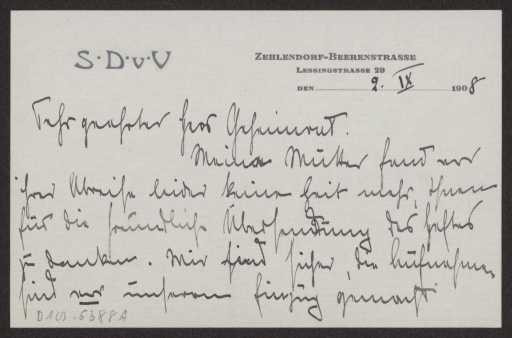 S·D·v·V
ZEHLENDORF-BEERENSTRASSE
LESSINGSTRASSE 29
DEN 2. IX 1908
Sehr geehrter Herr Geheimrat.
Meine Mutter fand vor
ihrer Abreise leider keine Zeit mehr, Ihnen
für die freundliche Übersendung des Heftes
zu danken. Wir sind sicher, die Aufnahmen
sind vor unserem Einzug gemacht